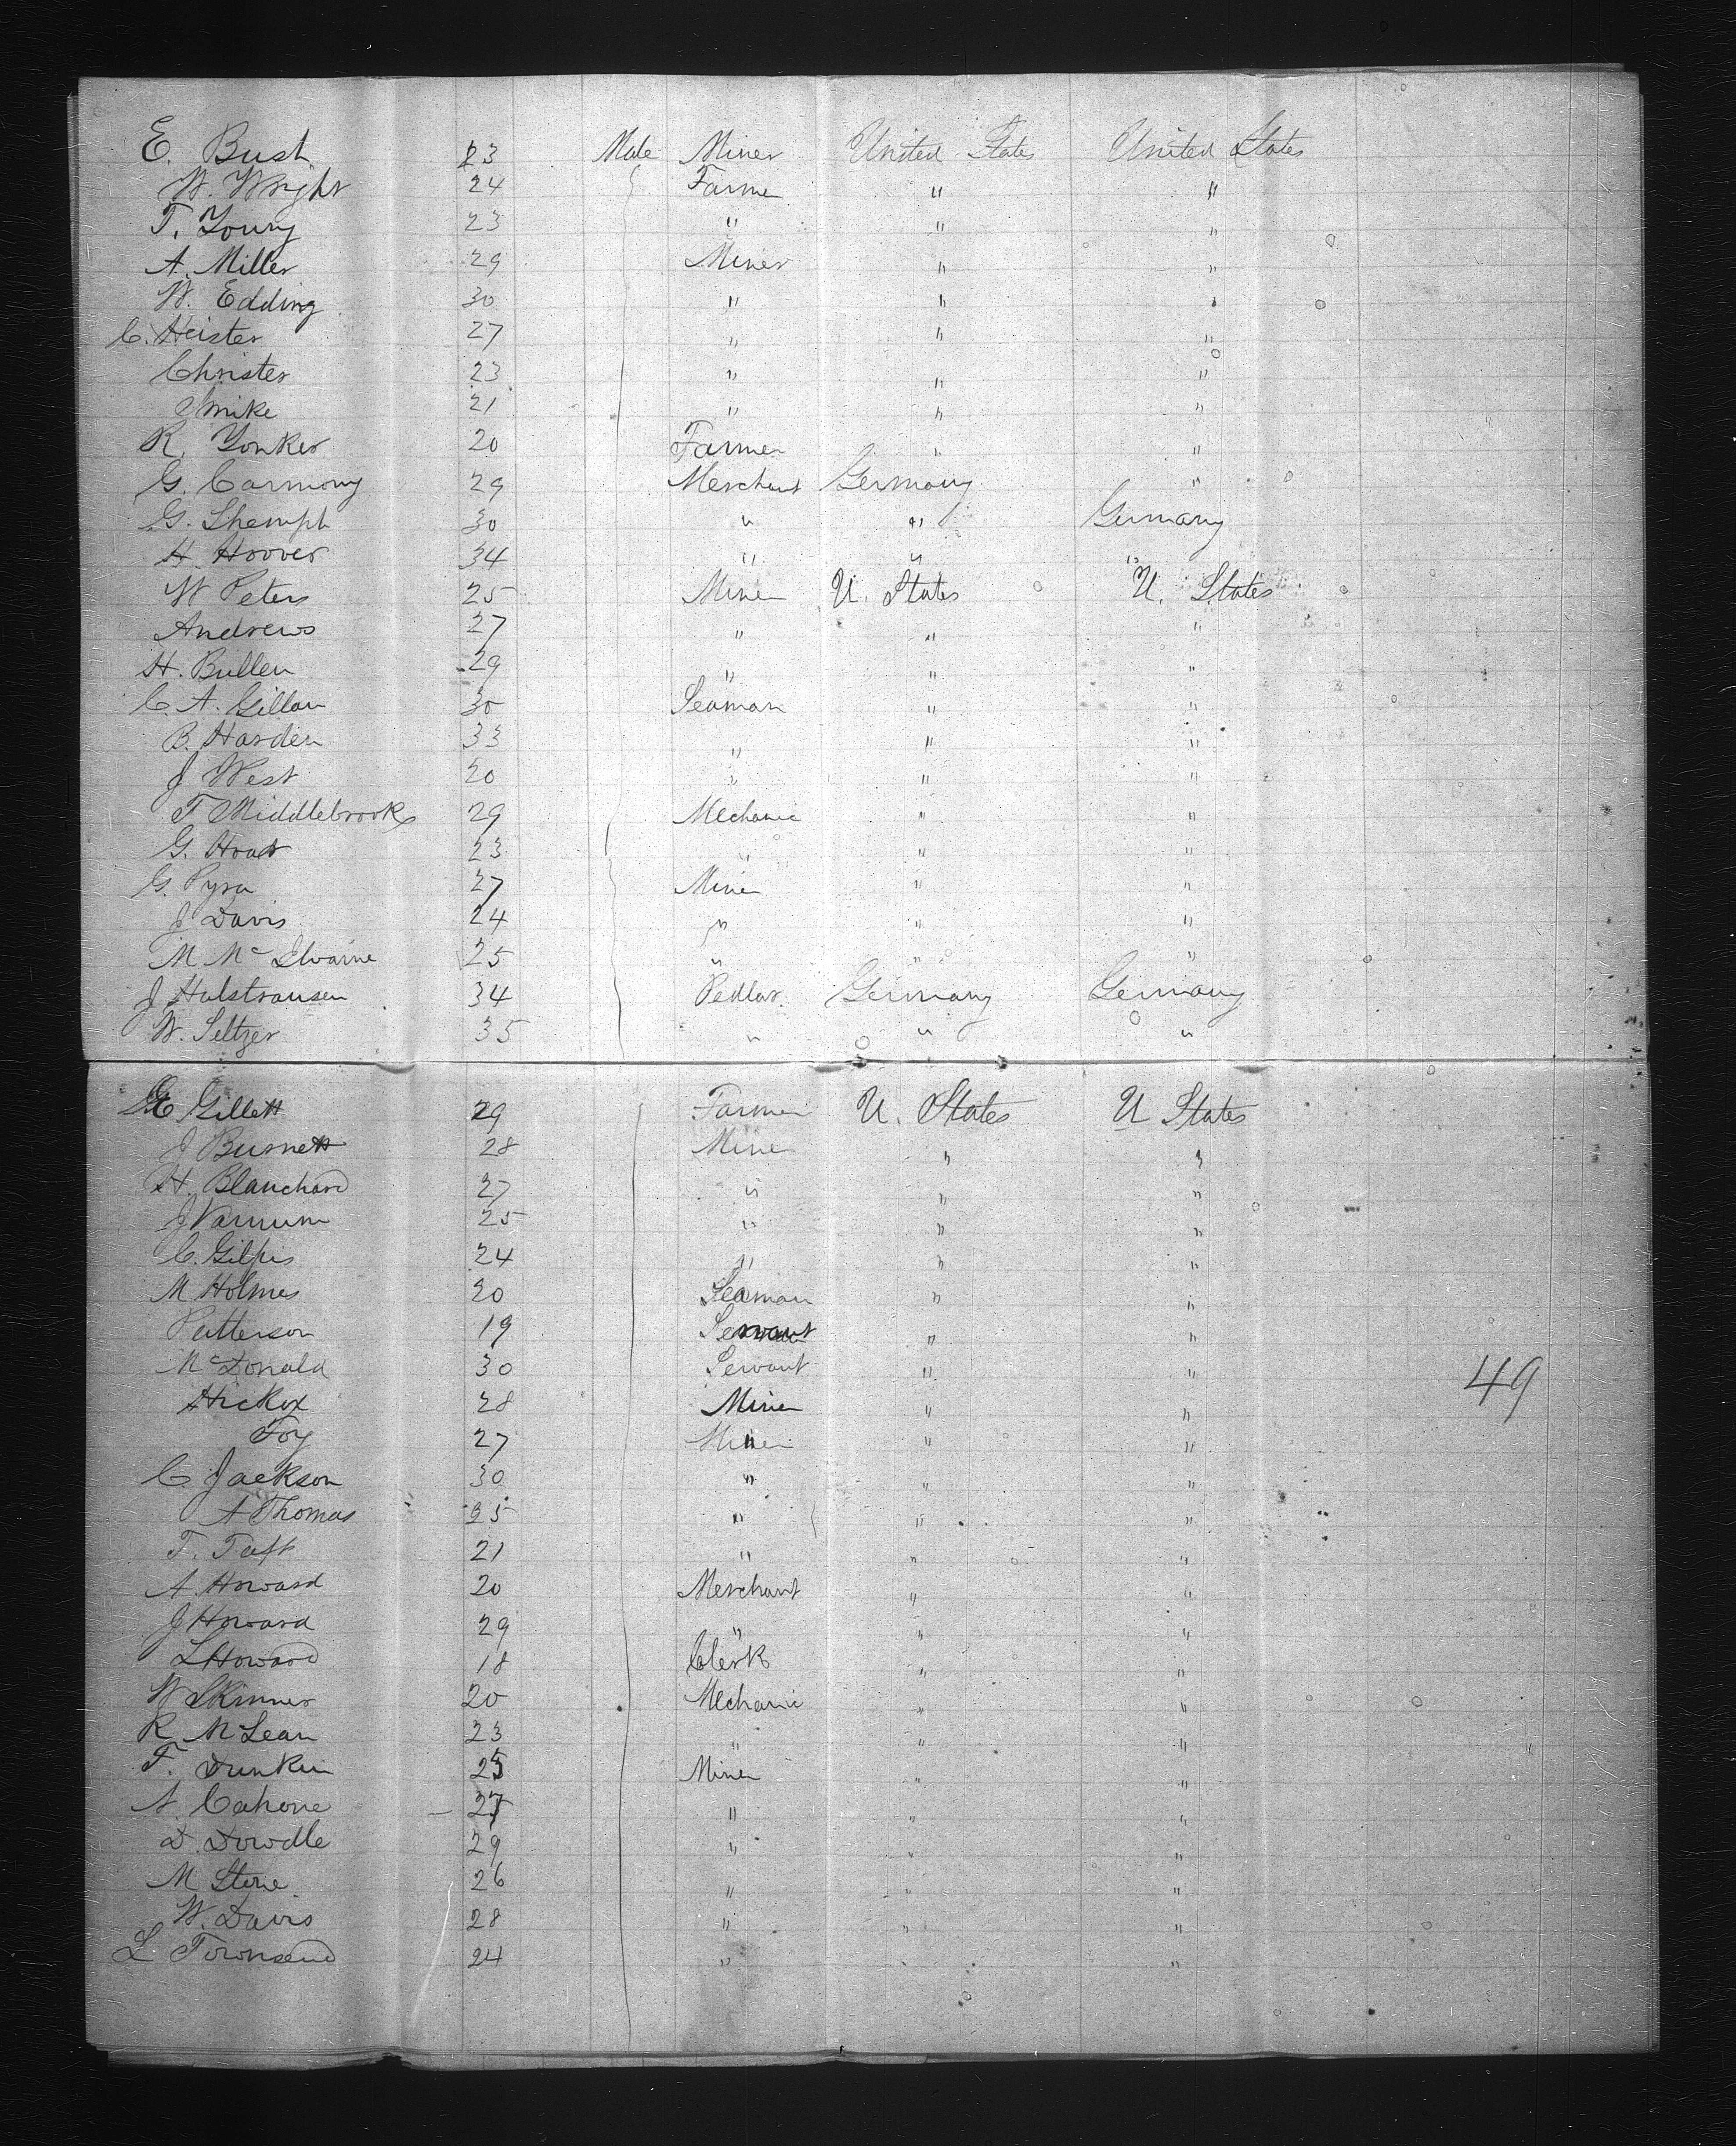 E. Bush 23 Male Miner United States United States
W. Wright 24 Farmer " "
T. Young 23 " " "
A. Miller 29 Miner " "
W. Edding 30 " " "
C. Heister 27 " " "
Christer 23 " " "
Smike 21 " " "
R. Yonker 20 Farmer " "
G. Carmony 29 Merchant Germany "
G. Shemph 30 " " Germany
H. Hoover 34 " " "
W Peters 25 Miner U. States U. States
Andrews 27 " " "
H. Bullen 29 " " "
C. A. Gillan 30 Seaman " "
B. Harden 33 " " "
J West 20 " " "
T Middlebrooks 29 Mechanic " "
G. Hoadt 23 " " "
G. Pyra 27 Miner " "
J Davis 24 " " "
M Mc Ilvaine 25 " " "
J Halstrausen 34 Pedlar. Germany Germany
W. Seltzer 35 " " "
E Gillett 29 Farmer U. States U States
J Burnett 28 Miner " "
H. Blanchard 27 " " "
J Varnum 25 " " "
C. Gilpis 24 " " "
M Holmes 20 Seaman " "
Patterson 19 Servant " "
McDonald 30 Servant " "
49
Hickox 28 Miner " "
Foy 27 Miner " "
C Jackson 30 " " "
A Thomas 35 " " "
T. Taft 21 " " "
A. Howard 20 Merchant " "
J Howard 29 " " "
L Howard 18 Clerk " "
W Skinner 20 Mechanic " "
R McLean 23 " " "
F. Dunkin 25 Miner " "
A. Cahone 27 " " "
D. Dowdle 29 " " "
M Stone 26 " " "
W. Davis 28 " " "
L Townsend 24 " " "